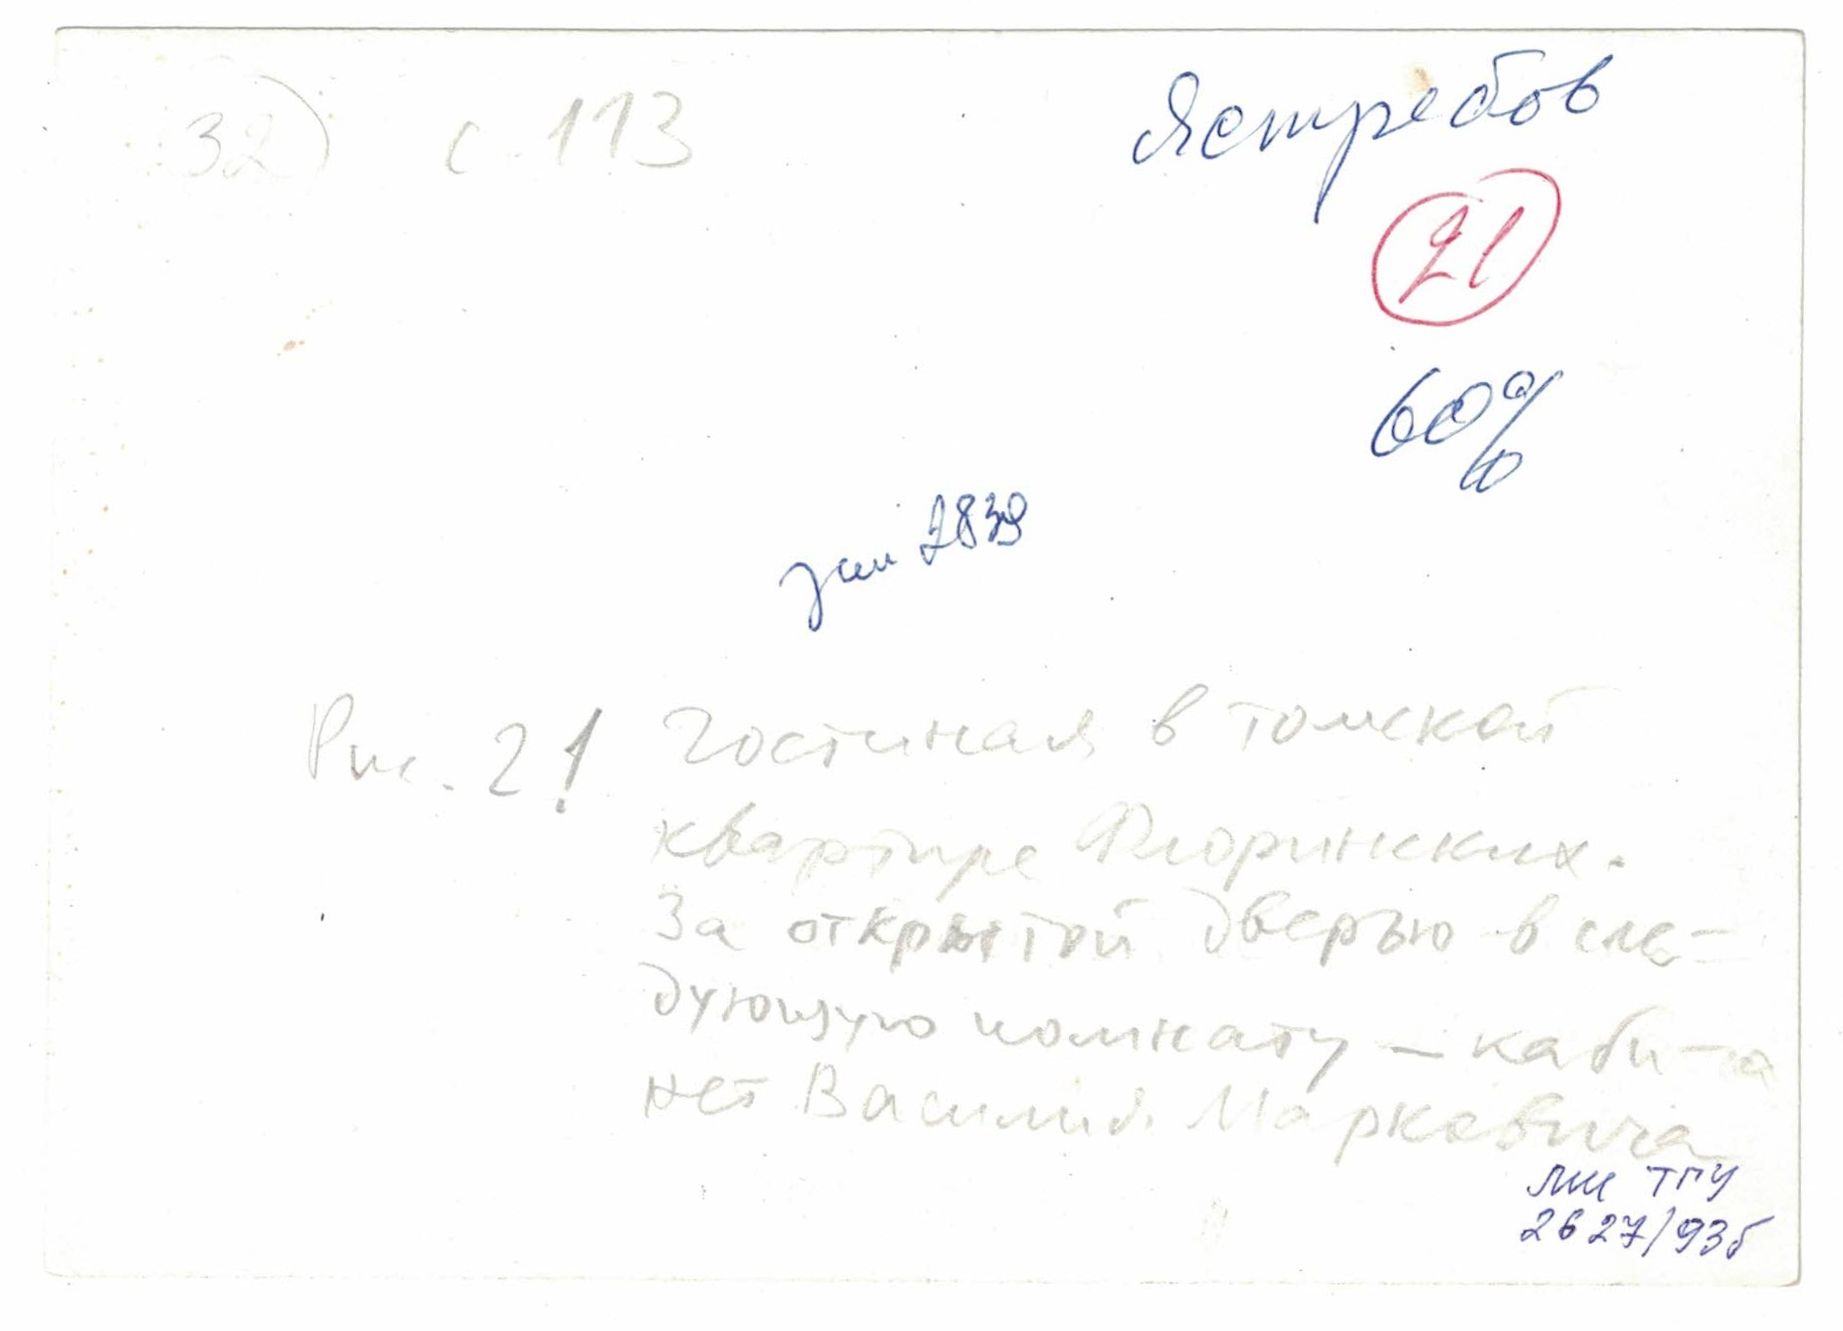 32) с. 113
Ястребов
21
60%
зак 2839
Рис. 21 Гостиная в томской
квартире Флоринских.
За открытой дверью в сле-
дующую комнату – каби-
нет Василия Марковича
ТПУ
2627/93б